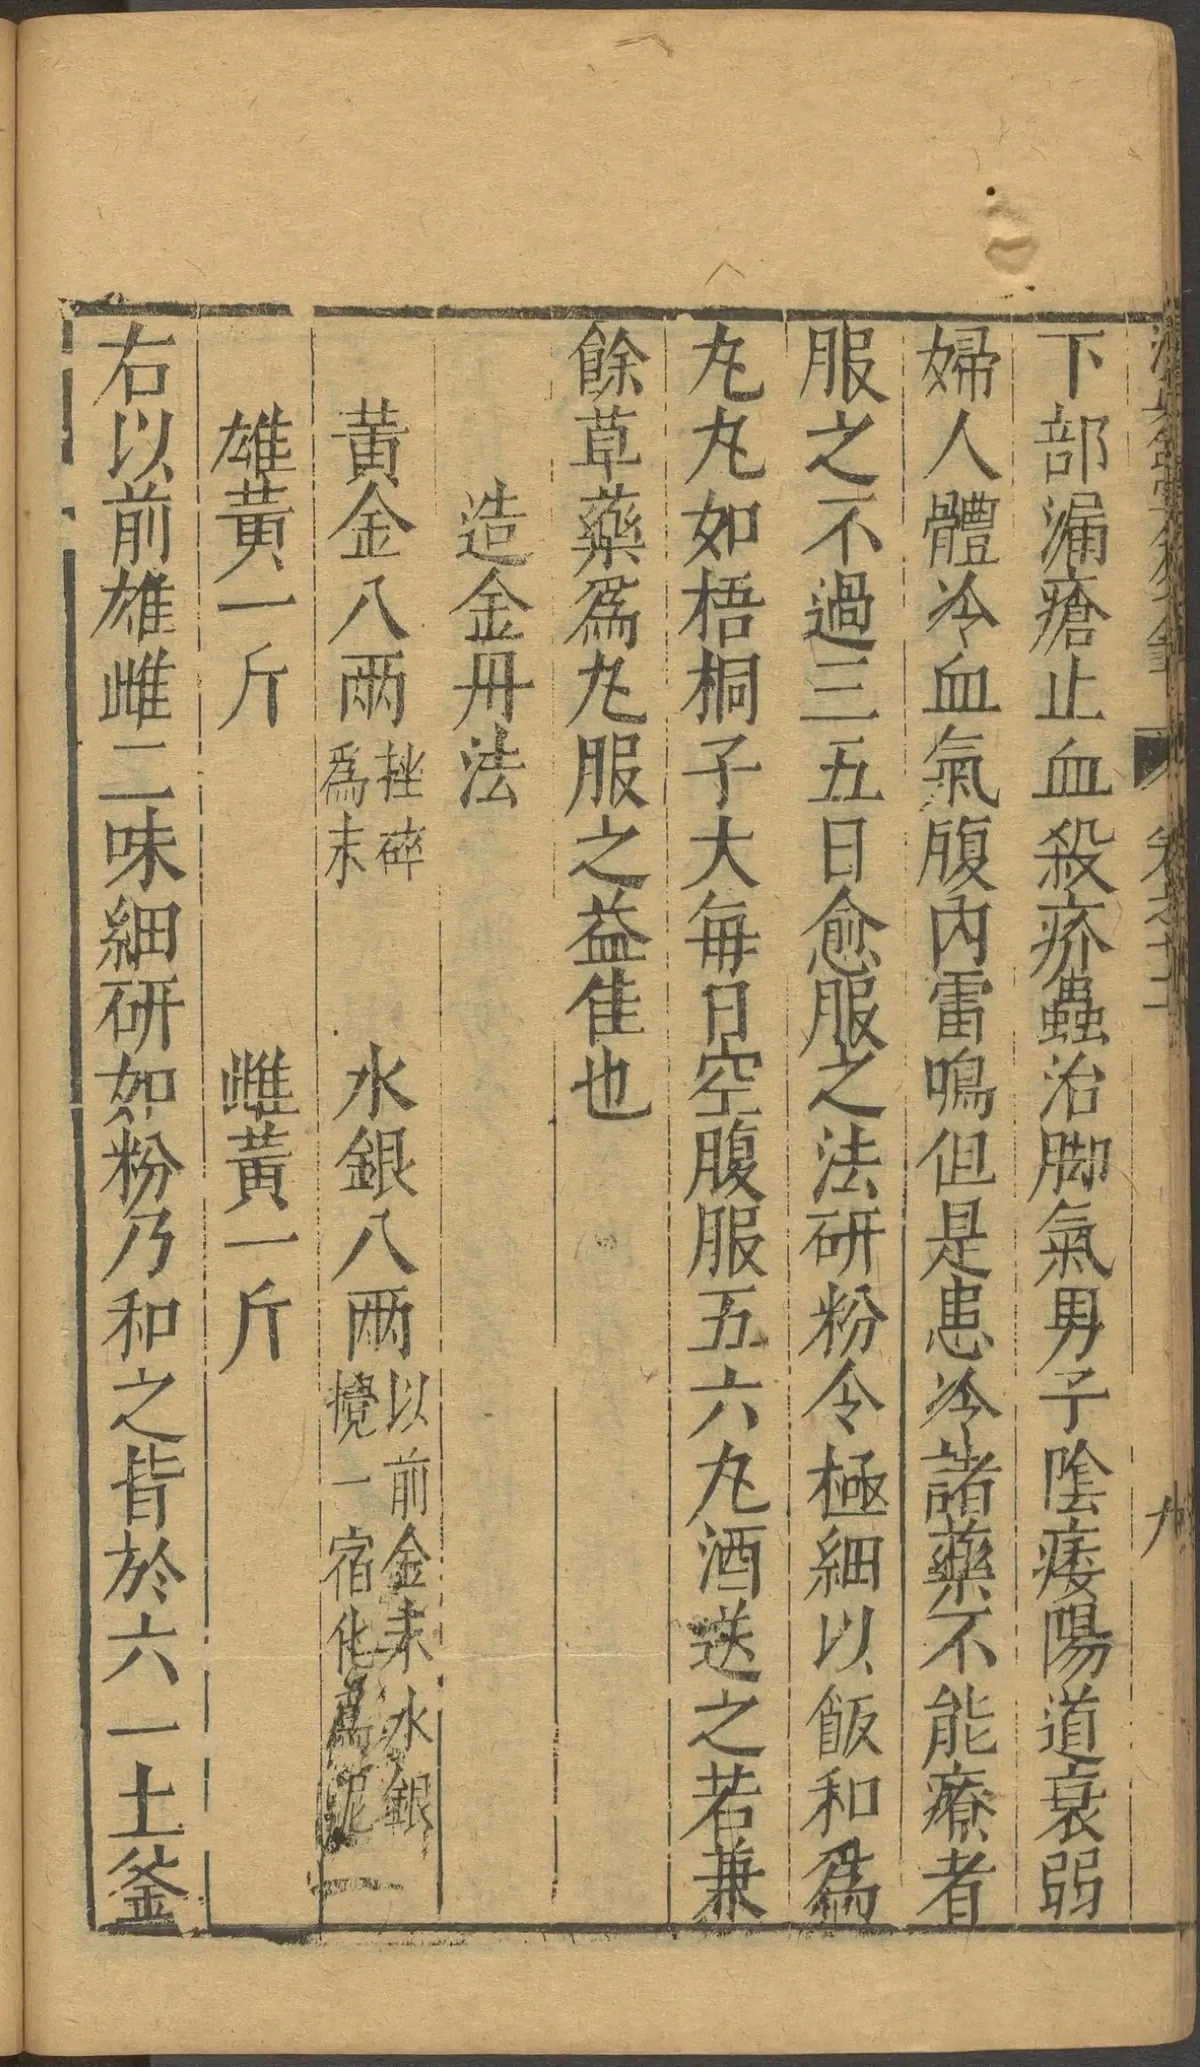 卷之十二
九
下部漏瘡止血殺疥蟲治脚氣男子陰痿陽道衰弱
婦人體冷血氣腹內雷鳴但是患冷諸藥不能療者
服之不過三五日愈服之法研粉令極細以飯和爲
丸丸如梧桐子大每日空腹服五六丸酒送之若兼
餘草藥爲丸服之益佳也
造金丹法
黃金八兩挫碎爲末　水銀八兩以前金末水銀攪一宿化爲泥
雄黃一斤　雌黃一斤
右以前雄雌二味細研如粉乃和之皆於六一土釜